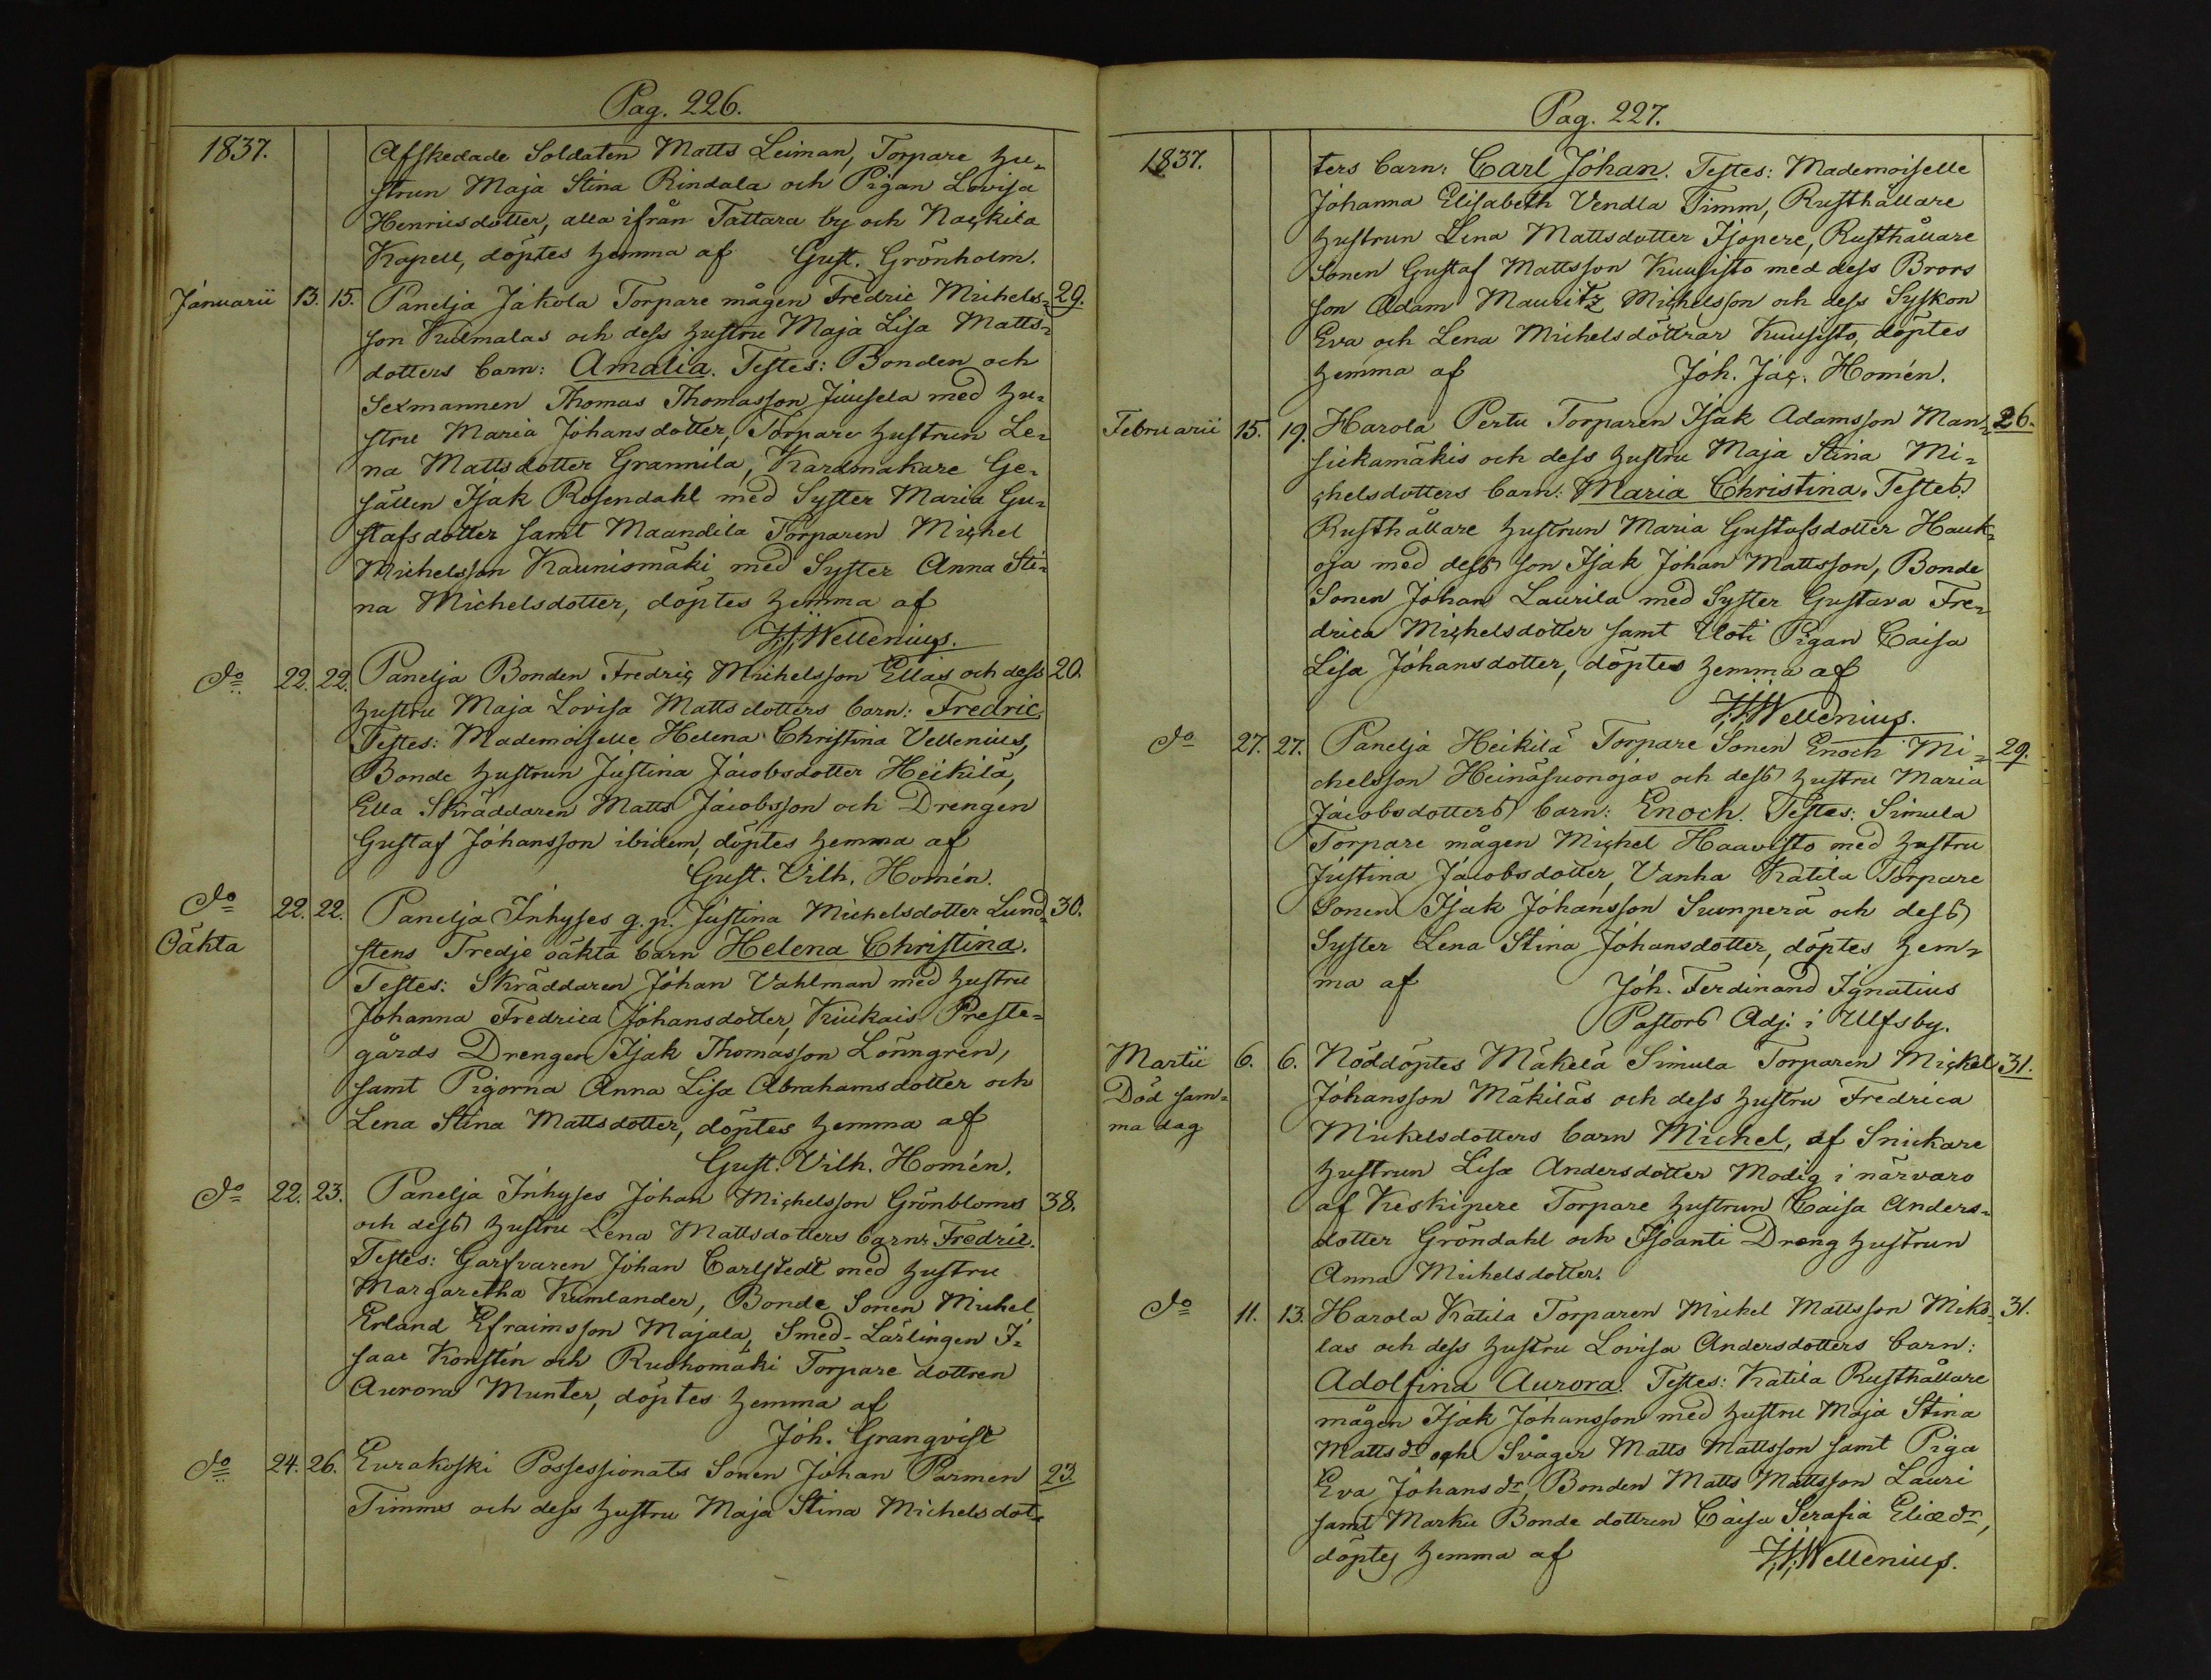 Pag. 226.
1837. Afskedade Soldaten Matts Leiman, Torpare hu-
strun Maja Stina Rindala och Pigan Lovisa
Henricsdotter, alla ifrån Tattara by och Nackila
Kapell, döptes hemma af Gust. Grönholm.
Januarii 13. 15. Panelja Jakola Torpare mågen Fredric Michels- 29.
son Kulmalas och dess hustru Maja Lisa Matts-
dotters barn: Amalia. Testes: Bonden och
Sexmannen Thomas Thomasson Juusela med hu-
stru Maria Johansdotter, Torpare hustrun Le-
na Mattsdotter Grannila, Kardmakare Ge-
sällen Isak Rosendahl med Syster Maria Gu-
stafsdotter samt Maandila Torparen Michel
Michelsson Kaunismäki med Syster Anna Sti-
na Michelsdotter, döptes hemma af
J. J. Wellenius.
do 22. 22. Panelja Bonden Fredric Michelsson Ellas och dess 20.
hustru Maja Lovisa Mattsdotters barn: Fredric.
Testes: Mademoiselle Helena Christina Vellenius,
Bonde hustrun Justina Jacobsdotter Heikilä,
Ella Skräddaren Matts Jacobsson och Drengen
Gustaf Johansson ibidem, döptes hemma af
Gust. Vilh. Homén.
do 22. 22. Panelja Inhyses q. p. Justina Michelsdotter Lund- 30.
Oäkta stens Tredje oäkta barn Helena Christina.
Testes: Skräddaren Johan Vahlman med hustru
Johanna Fredrica Johansdotter, Kiukais Preste-
gårds Drengen Isak Thomasson Lönngren,
samt Pigorna Anna Lisa Abrahamsdotter och
Lena Stina Mattsdotter, döptes hemma af
Gust. Vilh. Homén.
do 22. 23. Panelja Inhyses Johan Michelsson Grönbloms 38.
och dess hustru Lena Mattsdotters barn: Fredric.
Testes: Garfvaren Johan Carlstedt med hustru
Margaretha Kumlander, Bonde Sonen Michel
Erland Efraimsson Majala, Smed-Lärlingen I-
saac Konstén och Ruohomäki Torpare dottren
Aurora Munter, döptes hemma af
Joh. Granqvist
do 24. 26. Eurakoski Possessionats Sonen Johan Parmen 23.
Timms och dess hustru Maja Stina Michelsdot-
Pag. 227.
1837. ters barn: Carl Johan. Testes: Mademoiselle
Johanna Elisabeth Vendla Timm, Rusthållare
hustrun Lena Mattsdotter Isopere, Rusthållare
Sonen Gustaf Mattsson Kuusisto med dess Brors
son Adam Mauritz Michelsson och dess Syskon
Eva och Lena Michelsdöttrar Kuusisto, döptes
hemma af Joh. Jac. Homén.
Februarii 15. 19. Harola Pertu Torparen Isak Adamsson Man- 26.
sickamäkis och dess hustru Maja Stina Mi-
chelsdotters barn: Maria Christina. Testes:
Rusthållare hustrun Maria Gustafsdotter Hauk-
oja med dess son Isak Johan Mattsson, Bonde
Sonen Johan Laurila med Syster Gustava Fre-
drica Michelsdotter samt Uoti Pigan Caisa
Lisa Johansdotter, döptes hemma af
J. J. Wellenius.
do 27. 27. Panelja Heikilä Torpare Sonen Enoch Mi- 29.
chelsson Heinäsuonojas och dess hustru Maria
Jacobsdotters barn: Enoch. Testes: Simula
Torpare mågen Michel Haavisto med hustru
Justina Jacobsdotter, Vanha Katila Torpare
Sonen Isak Johansson Suonperä och dess
Syster Lena Stina Johansdotter, döptes hem-
ma af Joh. Ferdinand Ignatius
Pastors Adj. i Ulfsby.
Martii 6. 6. Nöddöptes Mäkelä Simula Torparen Mickel 31.
Död sam- Johansson Mäkiläs och dess hustru Fredrica
ma dag Mickelsdotters barn Michel, af Snickare
hustrun Lisa Andersdotter Modig i närvaro
af Keskipere Torpare hustrun Caisa Anders-
dotter Gröndahl och Isoanti Dreng hustrun
Anna Michelsdotter.
do 11. 13. Harola Katila Torparen Mickel Mattsson Mikä- 31.
las och dess hustru Lovisa Andersdotters barn:
Adolfina Aurora. Testes: Katila Rusthållare
mågen Isak Johansson med hustru Maja Stina
Mattsdr och Svåger Matts Mattsson samt Piga
Eva Johansdr, Bonden Matts Mattsson Lauri
samt Marku Bonde dottren Caisa Serafia Eliædr,
döptes hemma af J. J. Wellenius.